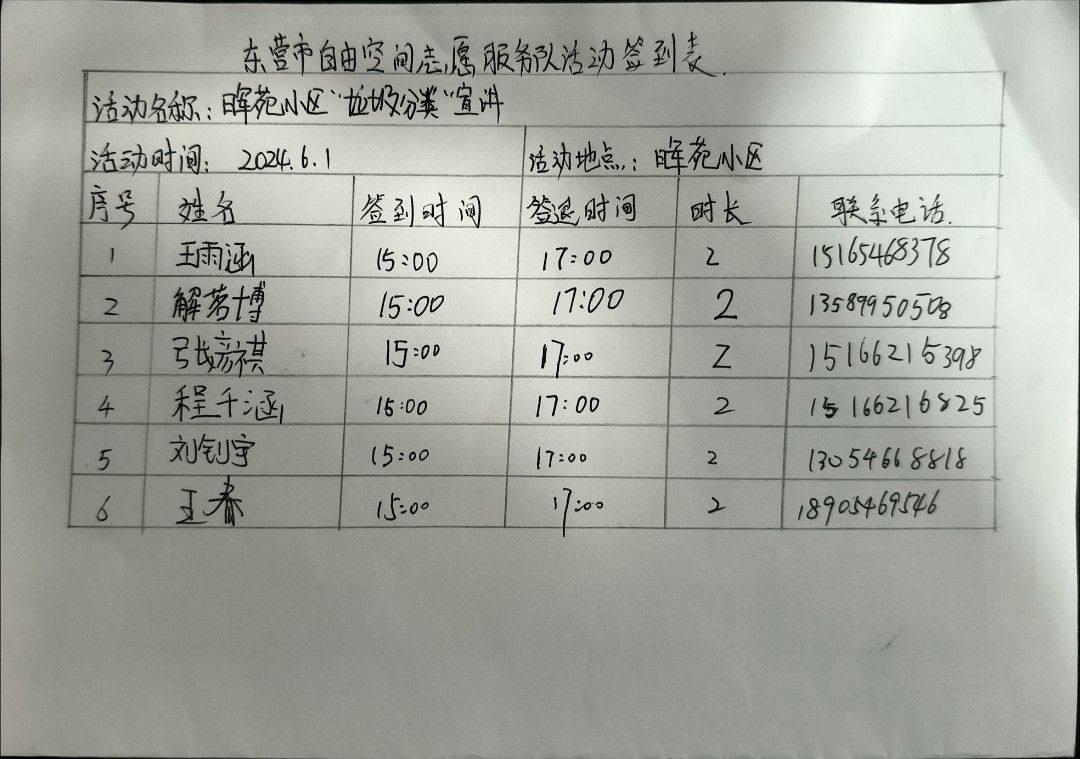 东营市自由空间志愿服务队活动签到表.
活动名称：晖苑小区“垃圾分类”宣讲
活动时间： 2024.6.1 活动地点：晖苑小区
序号 姓名 签到时间 签退时间 时长 联系电话.
1 王雨涵 15:00 17:00 2 15165468378
2 解茗博 15:00 17:00 2 13589950508
3 张彦祺 15:00 17:00 2 15166215398
4 程千涵 15:00 17:00 2 15166216825
5 刘钊宇 15:00 17:00 2 13054668818
6 王春 15:00 17:00 2 18905469546